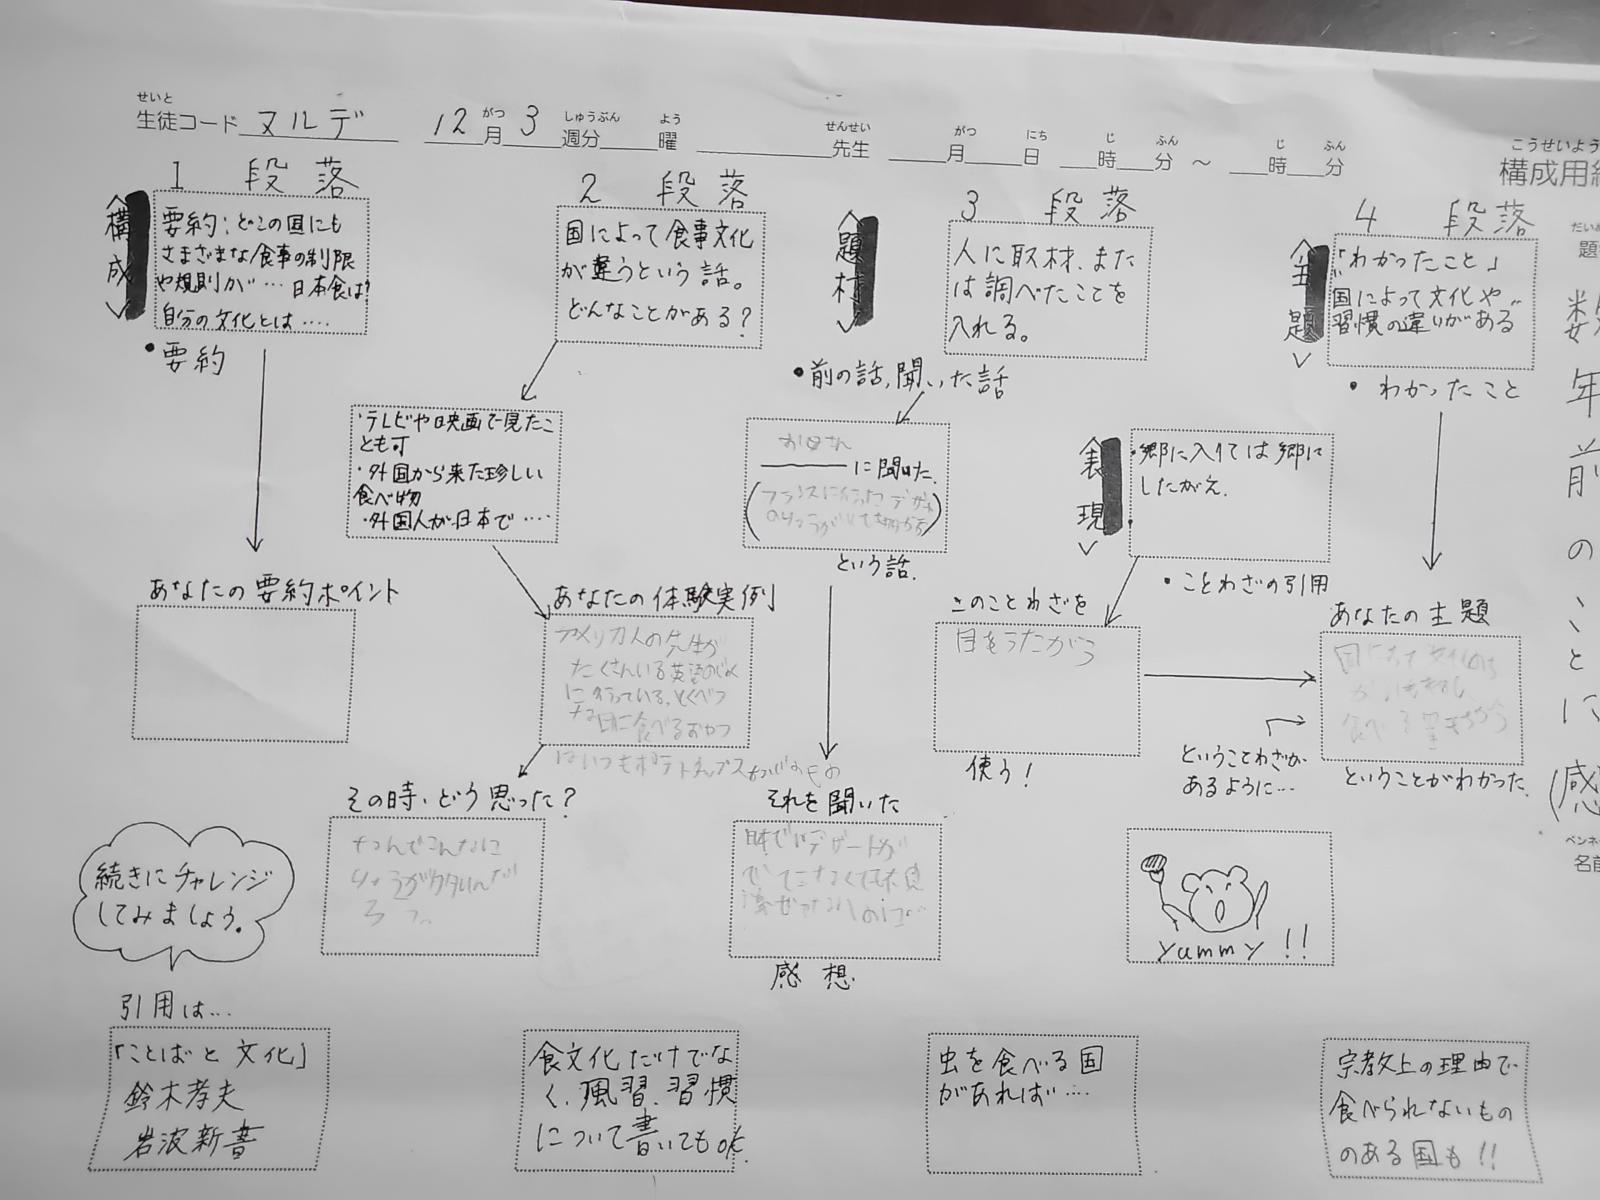 せいと
生徒コード ヌルデ 12月3週分 曜 先生 月 日 時 分 ～ 時 分
がつ しゅうぶん よう せんせい がつ にち じ ふん じ ふん
こうせいよう
構成用
1 段落
〈構成〉
要約:どこの国にも
さまざまな食事の制限
や規則が… 日本食は?
自分の文化とは….
・要約
あなたの要約ポイント
2 段落
国によって食事文化
が違うという話。
どんなことがある?
・テレビや映画で見たこ
とも可
・外国から来た珍しい
食べ物
・外国人が日本で….
あなたの体験実例
アメリカ人の先生が
たくさんいる英語のじゅく
に行っている。とくべつ
な日に食べるおやつ
はいつもポテトチップス
その時、どう思った?
なんでこんなに
りょうが
ろう
〈題材〉
3 段落
人に取材、また
は調べたことを
入れる。
・前の話,聞いた話
お母さん
に聞いた.
フランスに行った デザート
という話.
それを聞いた
日本ではデザートが
でてこなくても
感想.
〈表現〉
・郷に入りては郷に
したがえ.
・ことわざの引用
このことわざを
目をうたがう
使う!
ということわざが
あるように…
〈主題〉
4 段落
「わかったこと」
国によって文化や
習慣の違いがある
・わかったこと
あなたの主題
国によって文化の
食べる
ということがわかった.
yummy!!
続きにチャレンジ
してみましょう。
引用は…
「ことばと文化」
鈴木孝夫
岩波新書
食文化だけでな
く、風習、習慣
について書いてもOK.
虫を食べる国
があれば….
宗教上の理由で
食べられないもの
のある国も!!
だい
題
年
前
の
、
と
に
(感
ペンネ
名前